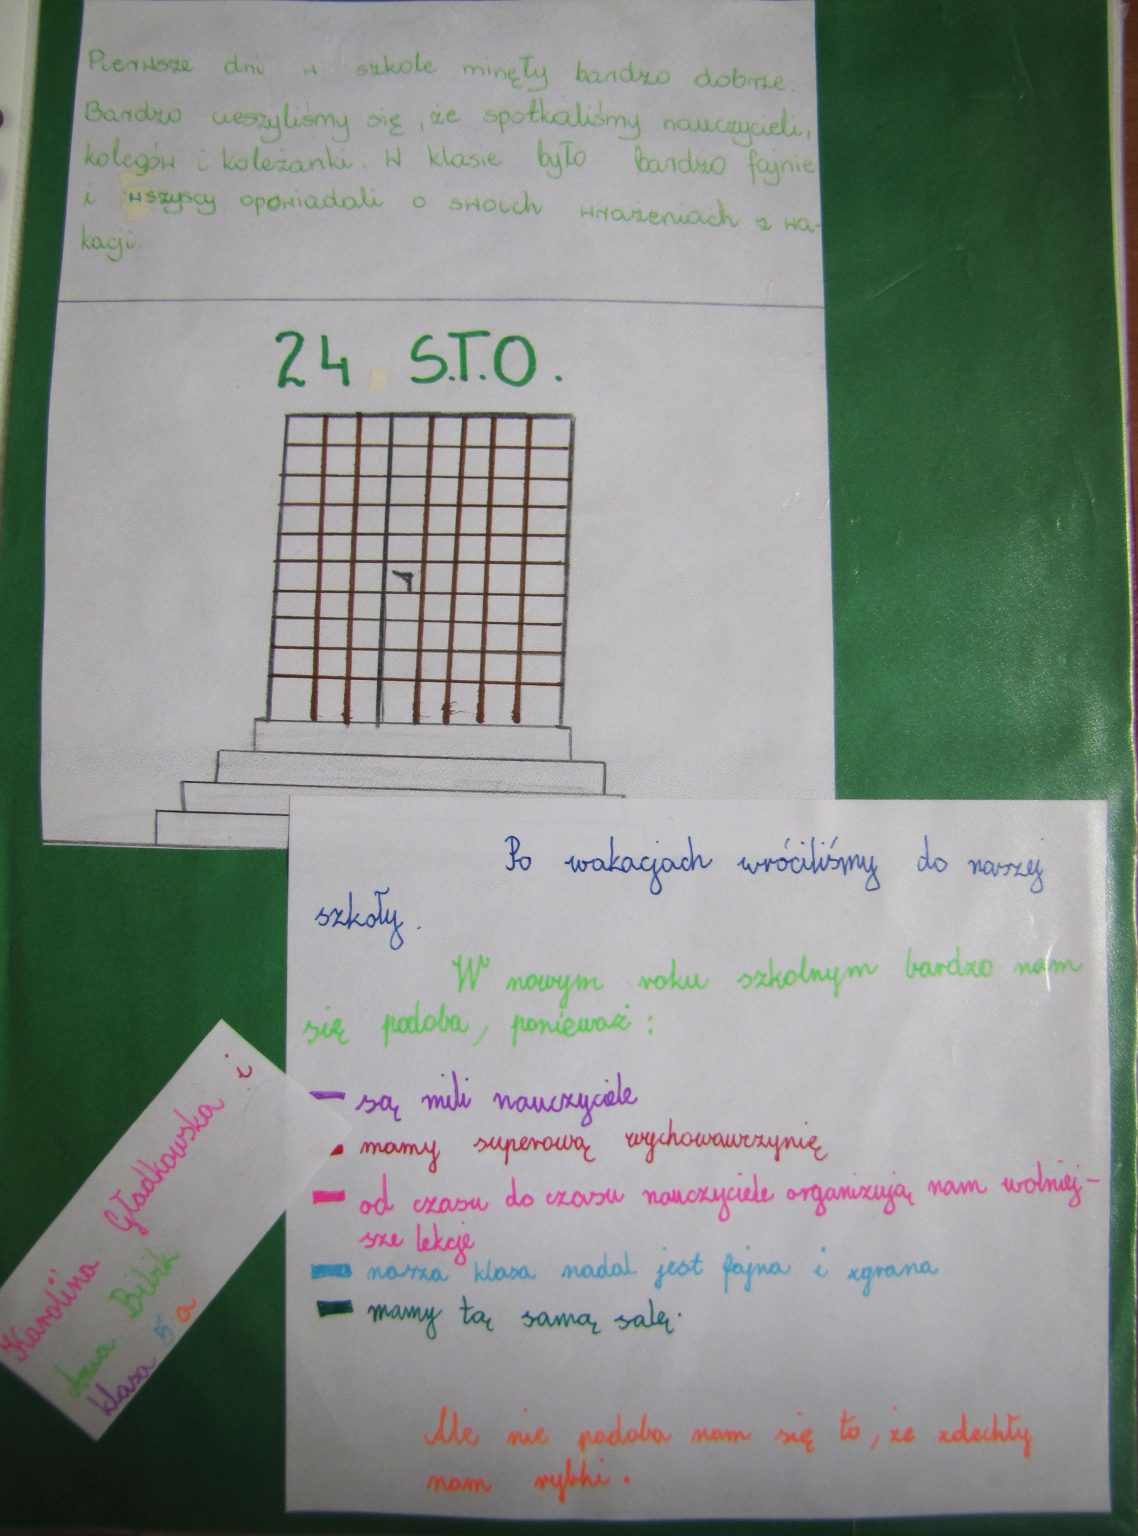 Pierwsze dni w szkole minęły bardzo dobrze.
Bardzo cieszyliśmy się, że spotkaliśmy nauczycieli,
kolegów i koleżanki. W klasie było bardzo fajnie
i wszyscy opowiadali o swoich wrażeniach z wa-
kacji.
24 S.T.O.
Po wakacjach wróciliśmy do naszej
szkoły.
W nowym roku szkolnym bardzo nam
się podoba, ponieważ:
- są mili nauczyciele
- mamy superową wychowawczynię
- od czasu do czasu nauczyciele organizują nam wolniej-
sze lekcje
- nasza klasa nadal jest fajna i zgrana
- mamy tą samą salę.
Ale nie podoba nam się to, że zdechły
nam rybki.
Karolina Gładkowska i
Ania Bilik
klasa 5 a